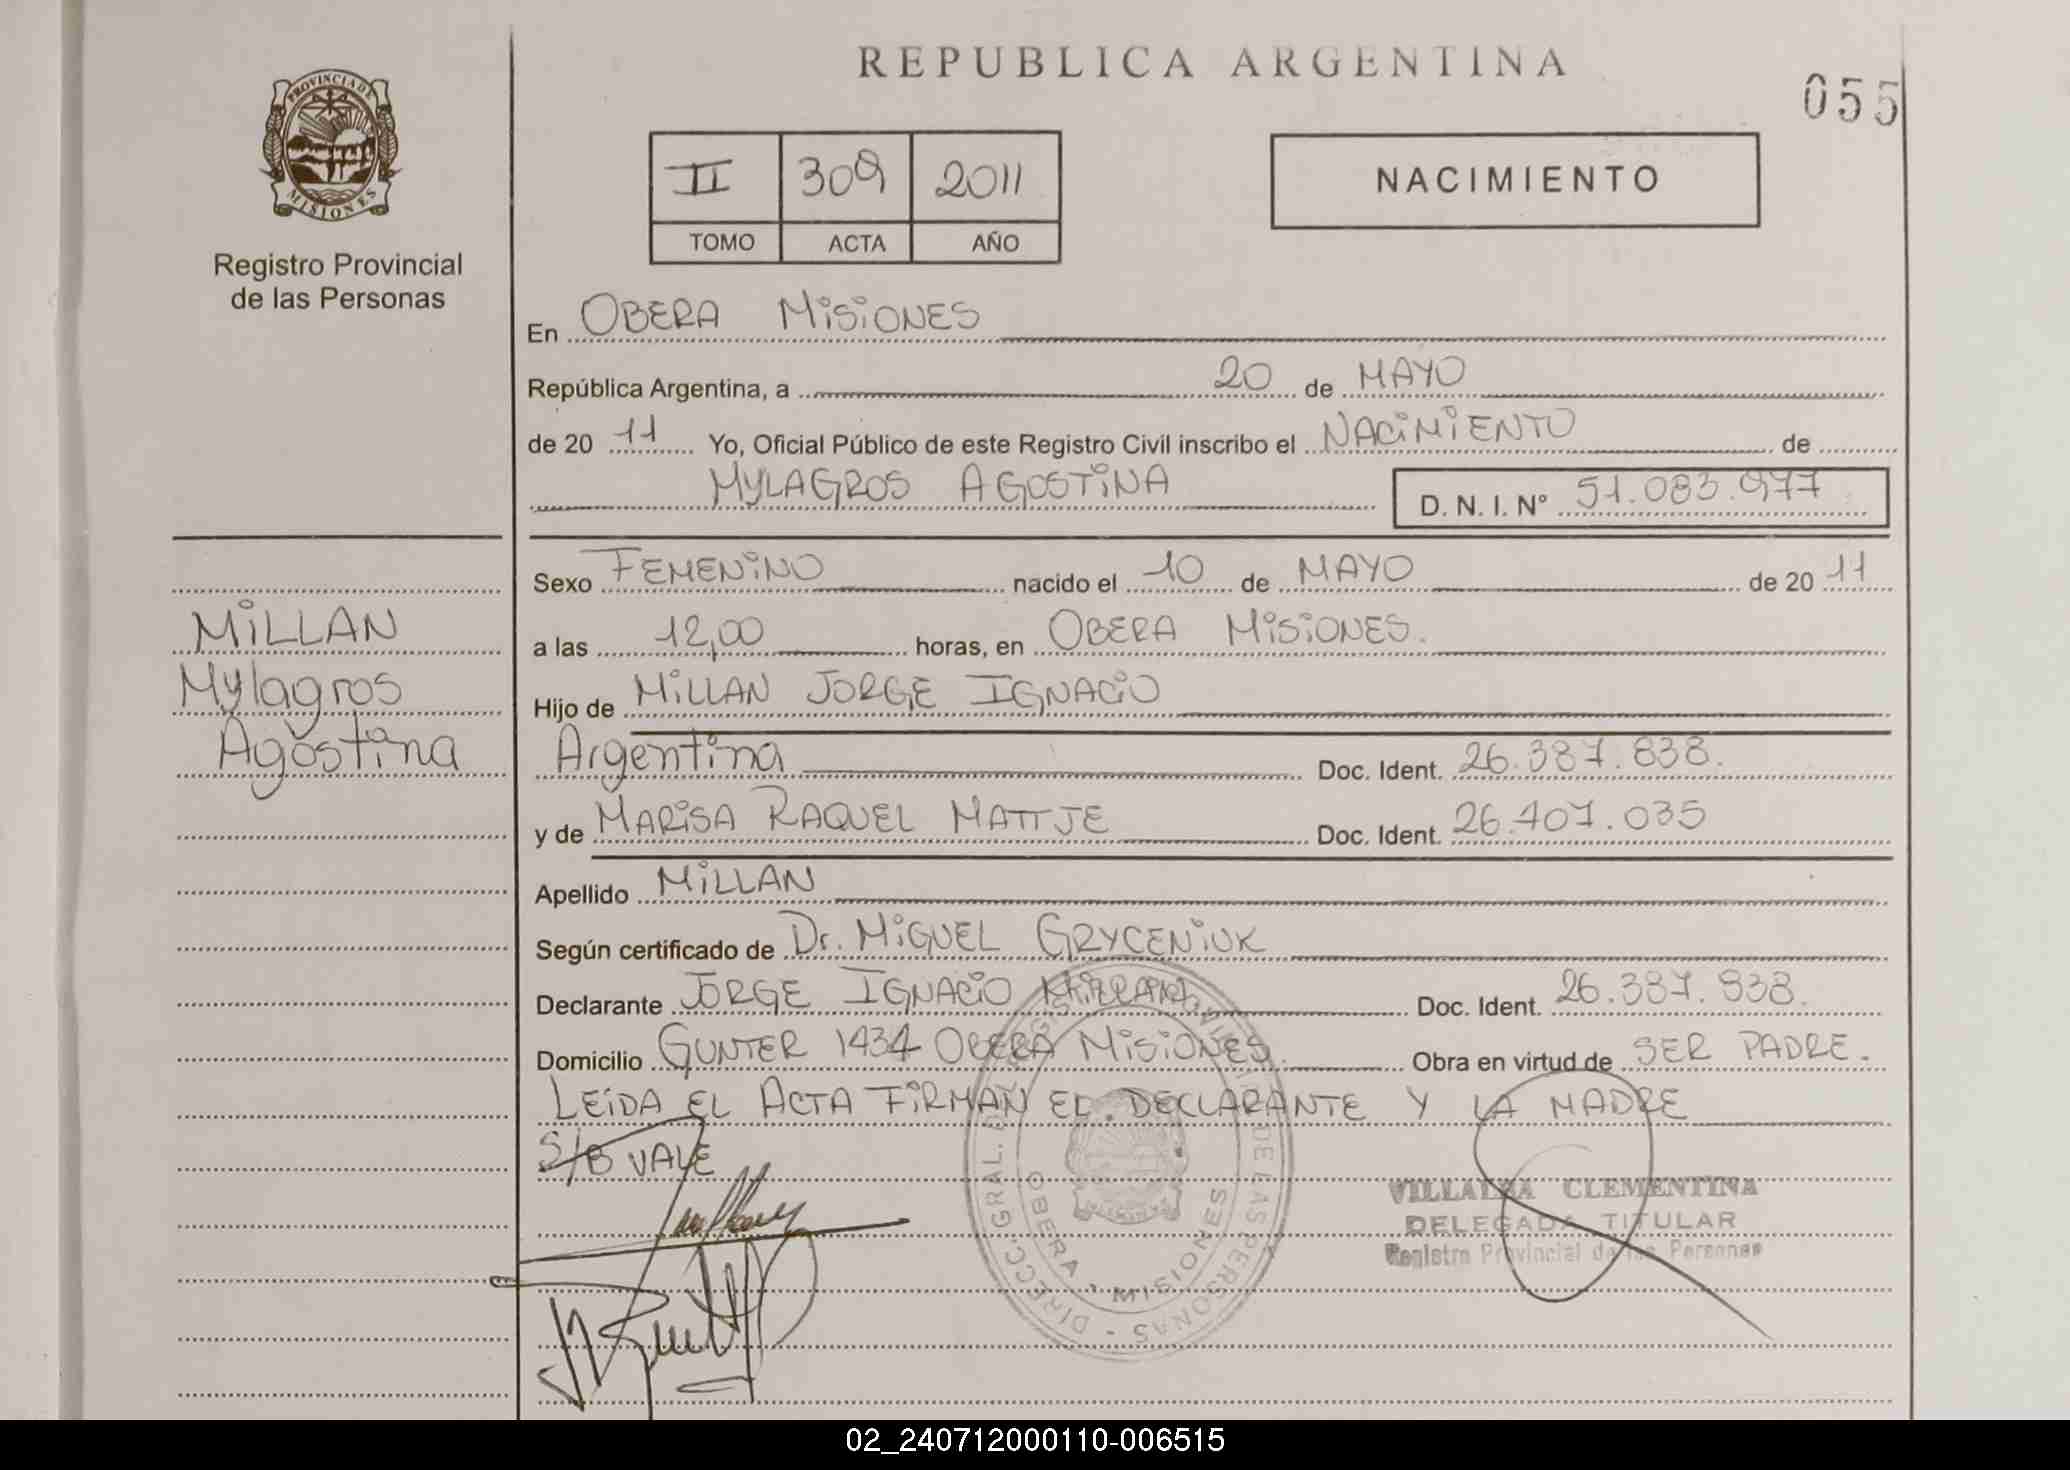 REPUBLICA ARGENTINA
055
PROVINCIA DE
MISIONES
Registro Provincial
de las Personas
II 309 2011
TOMO ACTA AÑO
NACIMIENTO
En OBERA MISIONES
República Argentina, a 20 de MAYO
de 20 11 Yo, Oficial Público de este Registro Civil inscribo el NACIMIENTO de
MYLAGROS AGOSTINA D. N. I. Nº 51.083.977
Sexo FEMENINO nacido el 10 de MAYO de 20 11
a las 12,00 horas, en OBERA MISIONES.
Hijo de MILLAN JORGE IGNACIO
Argentina Doc. Ident. 26.387.838.
y de MARISA RAQUEL MATTJE Doc. Ident. 26.407.035
Apellido MILLAN
Según certificado de Dr. MIGUEL GRYCENIUK
Declarante JORGE IGNACIO MILLAN. Doc. Ident. 26.387.838.
Domicilio GUNTER 1434 OBERA MISIONES. Obra en virtud de SER PADRE.
LEIDA EL ACTA FIRMAN EL DECLARANTE Y LA MADRE
S/B VALE
MILLAN
Mylagros
Agostina
DIRECC. GRAL. DE REGISTRO PROVINCIAL DE LAS PERSONAS
OBERA - MISIONES
VILLALBA CLEMENTINA
DELEGADA TITULAR
Registro Provincial de las Personas
02_240712000110-006515